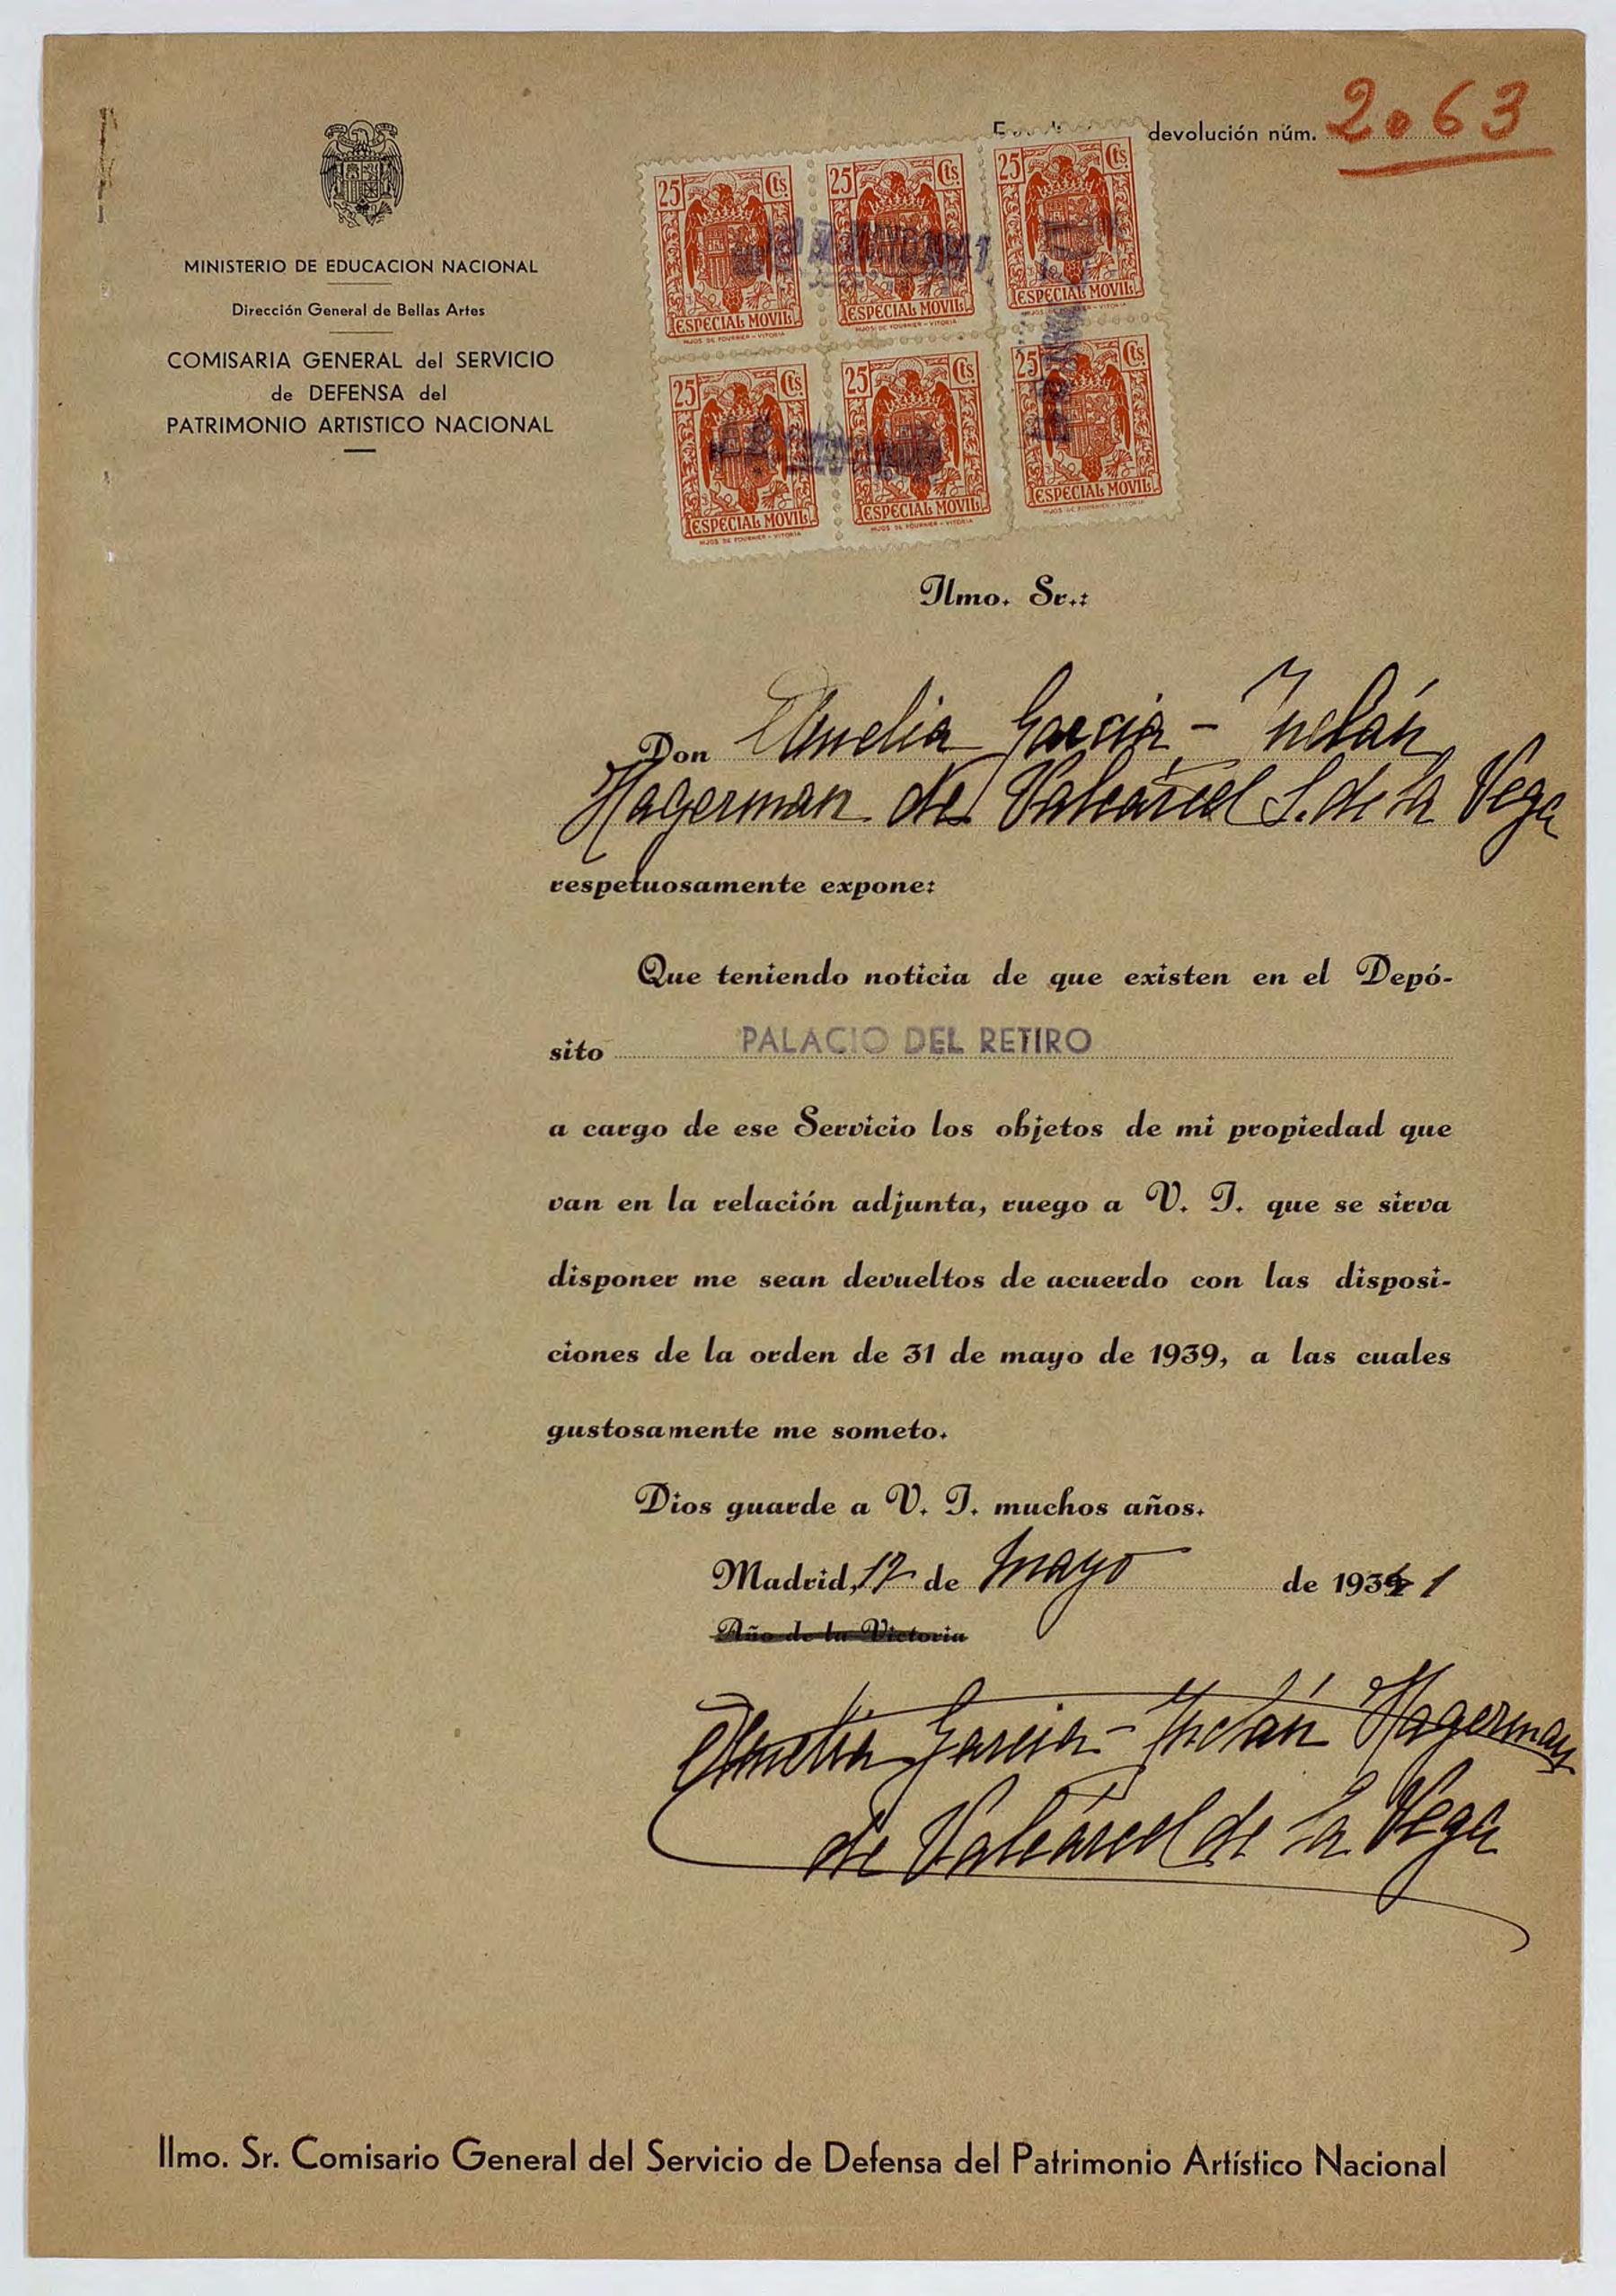 devolución núm. 2063
MINISTERIO DE EDUCACION NACIONAL
Dirección General de Bellas Artes
COMISARIA GENERAL del SERVICIO
de DEFENSA del
PATRIMONIO ARTISTICO NACIONAL
25 Cts 25 Cts 25 Cts
ESPECIAL MOVIL ESPECIAL MOVIL ESPECIAL MOVIL
HIJOS DE FOURNIER - VITORIA HIJOS DE FOURNIER - VITORIA HIJOS DE FOURNIER - VITORIA
25 Cts 25 Cts 25 Cts
ESPECIAL MOVIL ESPECIAL MOVIL ESPECIAL MOVIL
HIJOS DE FOURNIER - VITORIA HIJOS DE FOURNIER - VITORIA HIJOS DE FOURNIER - VITORIA
Ilmo. Sr.:
Don Amelia Garcia - Inclán
Hagerman de Valcárcel S. de la Vega
respetuosamente expone:
Que teniendo noticia de que existen en el Depó-
sito PALACIO DEL RETIRO
a cargo de ese Servicio los objetos de mi propiedad que
van en la relación adjunta, ruego a V. I. que se sirva
disponer me sean devueltos de acuerdo con las disposi-
ciones de la orden de 31 de mayo de 1939, a las cuales
gustosamente me someto.
Dios guarde a V. I. muchos años.
Madrid, 17 de Mayo de 1941
Año de la Victoria
Amelia Garcia - Inclán Hagerman
de Valcárcel de la Vega
Ilmo. Sr. Comisario General del Servicio de Defensa del Patrimonio Artístico Nacional